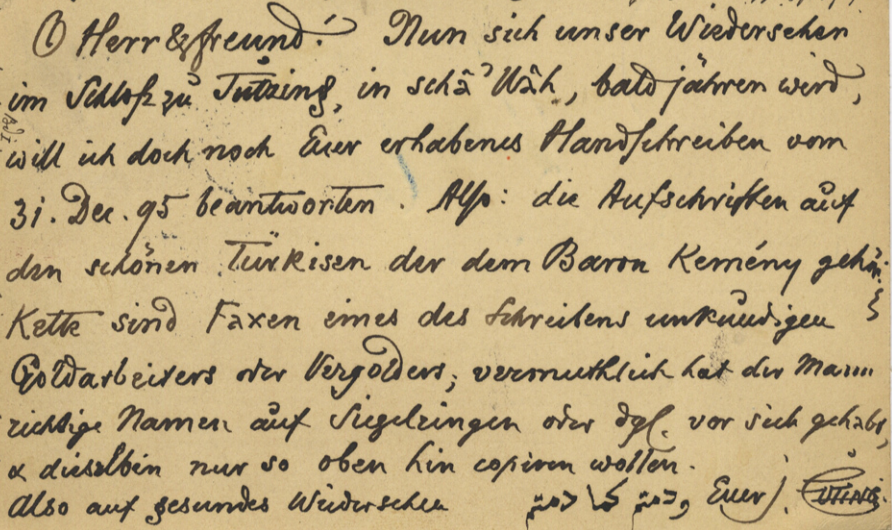 O Herr & Freund! Nun sich unser Wiedersehen
im Schloß zu Tutzing, in schā' llāh, bald jähren wird,
will ich doch noch Euer erhabenes Handschreiben vom
31. Dec. 95 beantworten. Also: die Aufschriften auf
den schönen Türkisen der dem Baron Kemény gehör.
Kette sind Faxen eines des Schreibens unkundigen
Goldarbeiters oder Vergolders; vermuthlich hat der Mann
richtige Namen auf Siegelringen oder dgl. vor sich gehabt,
& dieselben nur so oben hin copiren wollen.
Also auf gesundes Wiedersehen Euer